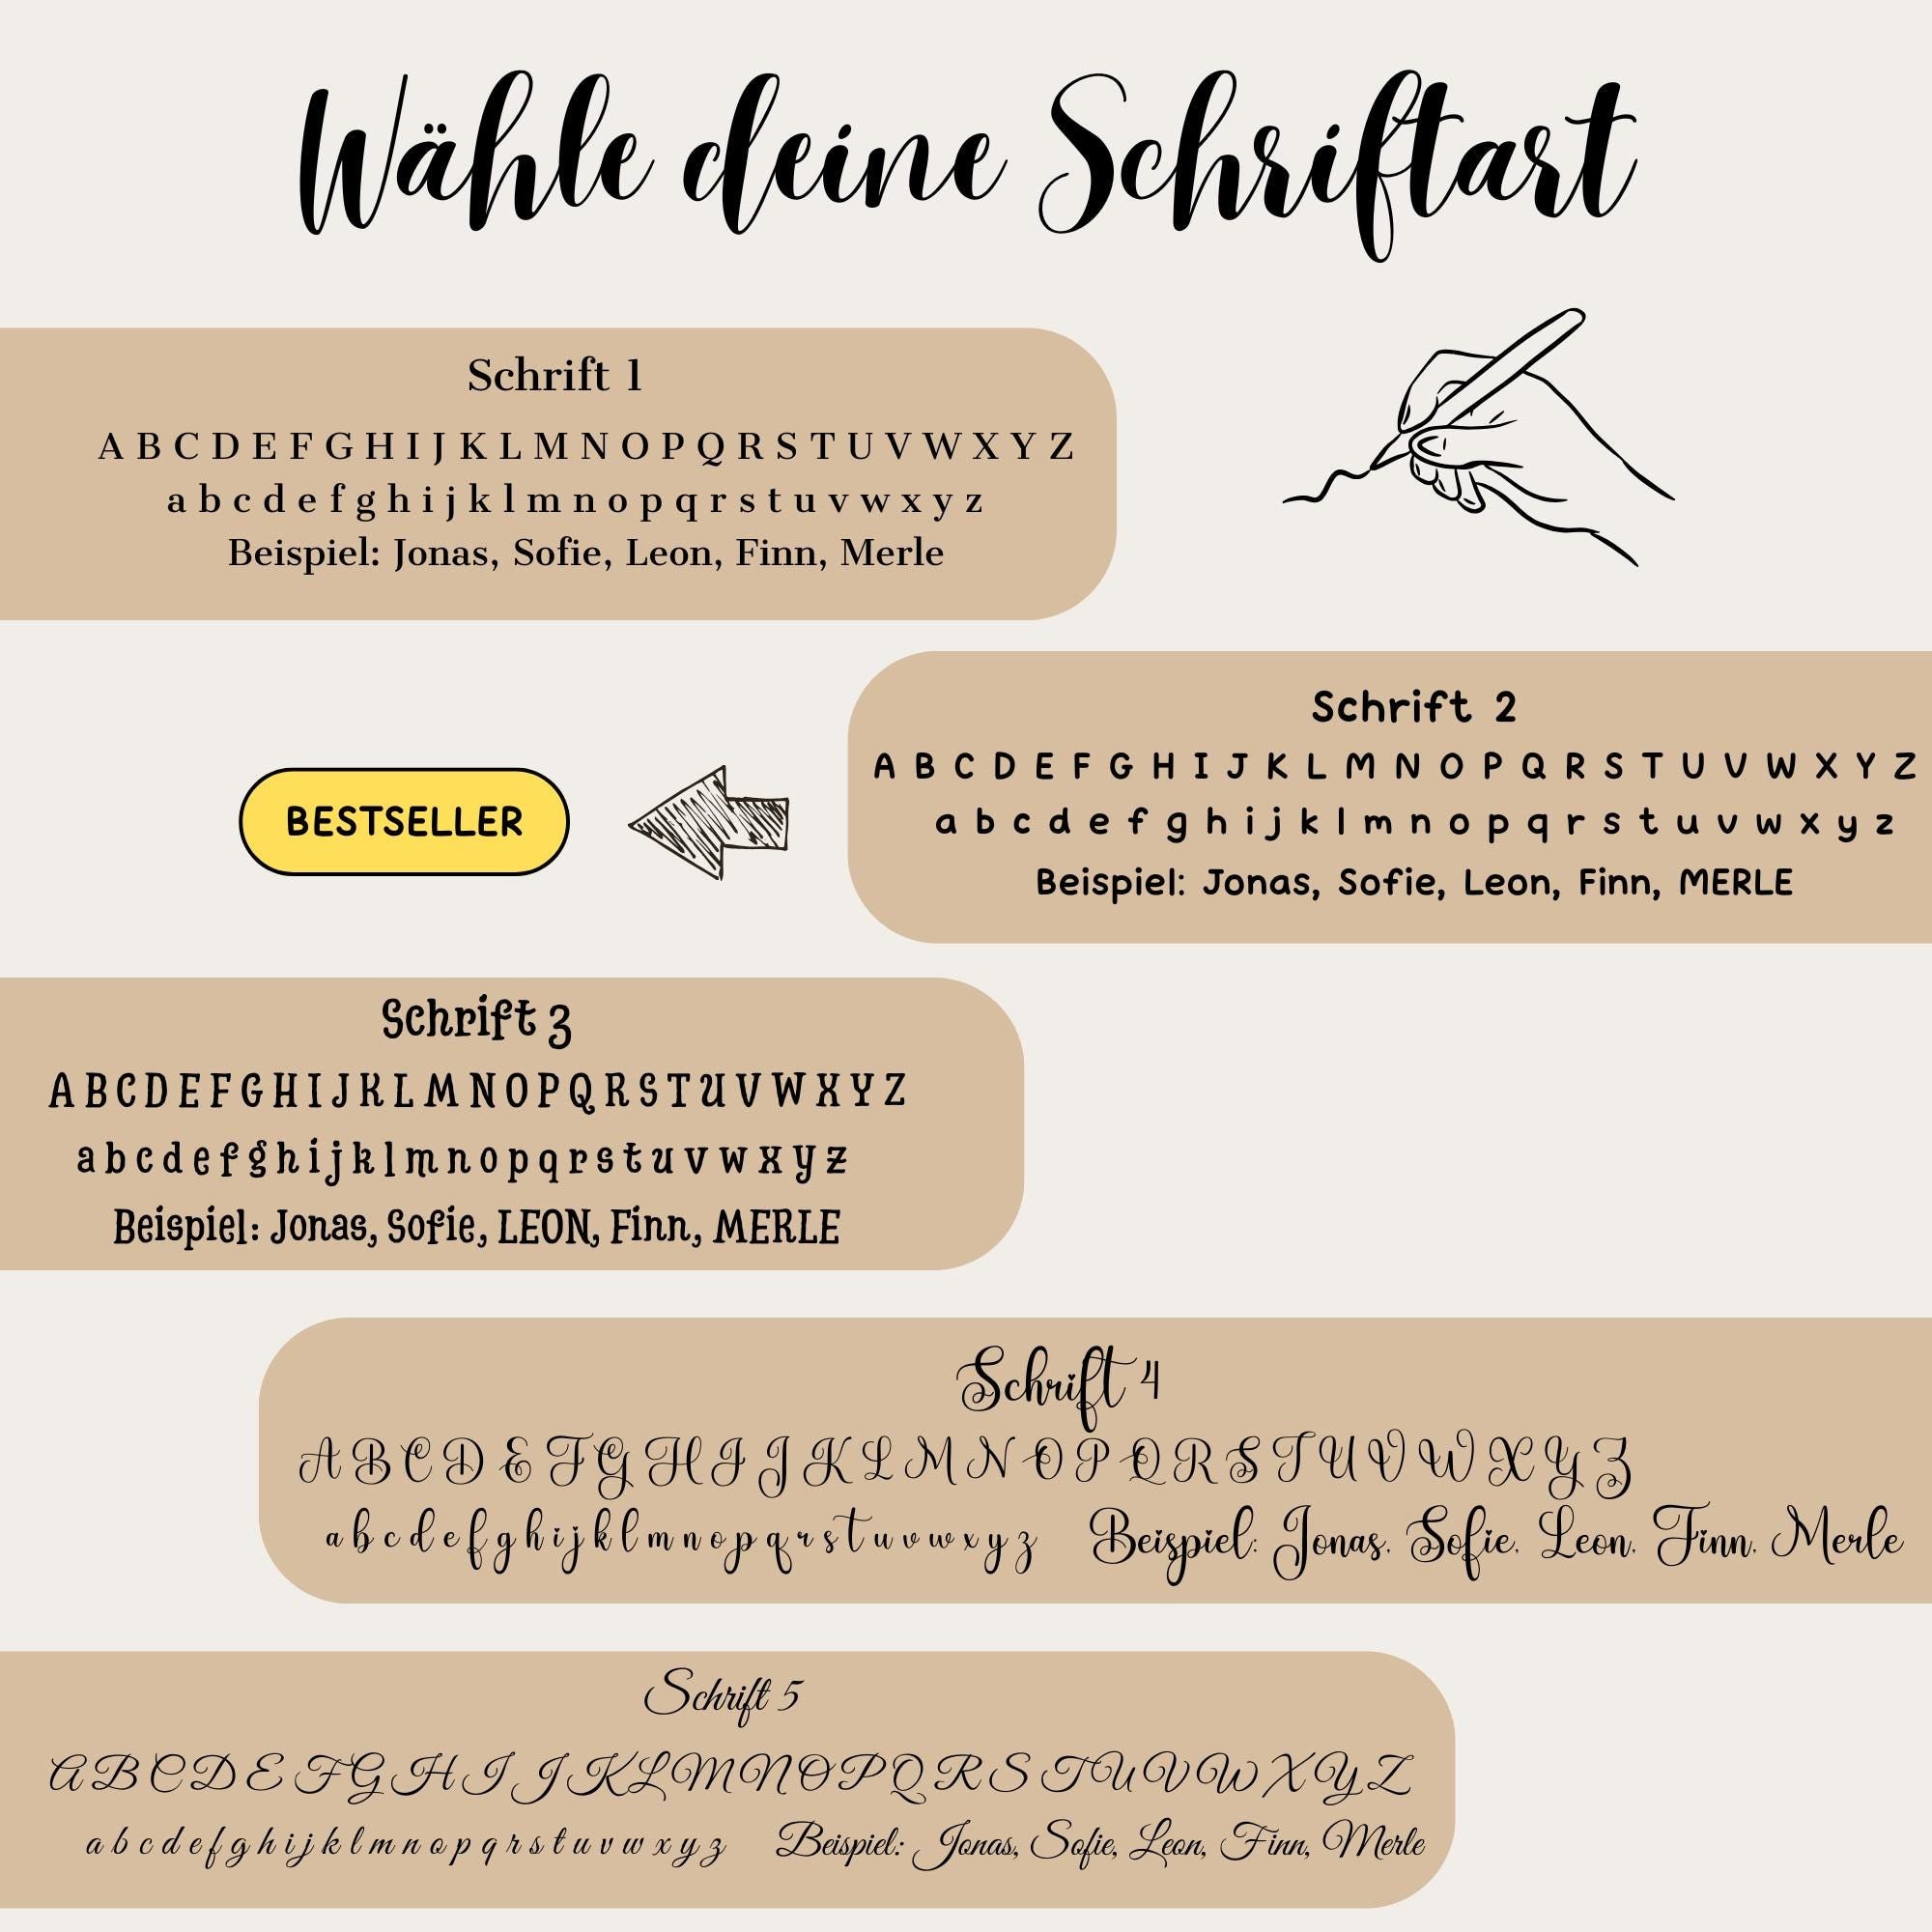 Wähle deine Schriftart
Schrift 1
A B C D E F G H I J K L M N O P Q R S T U V W X Y Z
a b c d e f g h i j k l m n o p q r s t u v w x y z
Beispiel: Jonas, Sofie, Leon, Finn, Merle
Schrift 2
A B C D E F G H I J K L M N O P Q R S T U V W X Y Z
a b c d e f g h i j k l m n o p q r s t u v w x y z
Beispiel: Jonas, Sofie, Leon, Finn, MERLE
BESTSELLER
Schrift 3
A B C D E F G H I J K L M N O P Q R S T U V W X Y Z
a b c d e f g h i j k l m n o p q r s t u v w x y z
Beispiel: Jonas, Sofie, LEON, Finn, MERLE
Schrift 4
A B C D E F G H I J K L M N O P Q R S T U V W X Y Z
a b c d e f g h i j k l m n o p q r s t u v w x y z Beispiel: Jonas, Sofie, Leon, Finn, Merle
Schrift 5
A B C D E F G H I J K L M N O P Q R S T U V W X Y Z
a b c d e f g h i j k l m n o p q r s t u v w x y z Beispiel: Jonas, Sofie, Leon, Finn, Merle